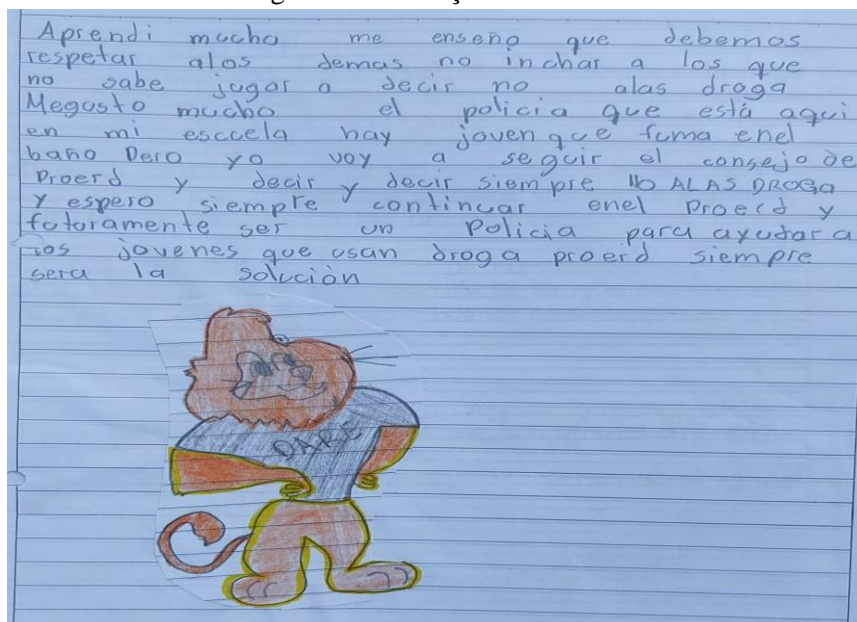 Aprendi mucho me enseño que debemos
respetar alos demas no inchar a los que
no sabe jugar a decir no alas droga
Megusto mucho el policia que está aqui
en mi esccela hay joven que fuma enel
baño Pero yo voy a seguir el consejo de
Proerd y decir y decir siempre No ALAS DROGA
Y espero siempre continuar enel Proerd y
futuramente ser un Policia para ayudar a
los jovenes que usan droga proerd siempre
sera la solución
DARE